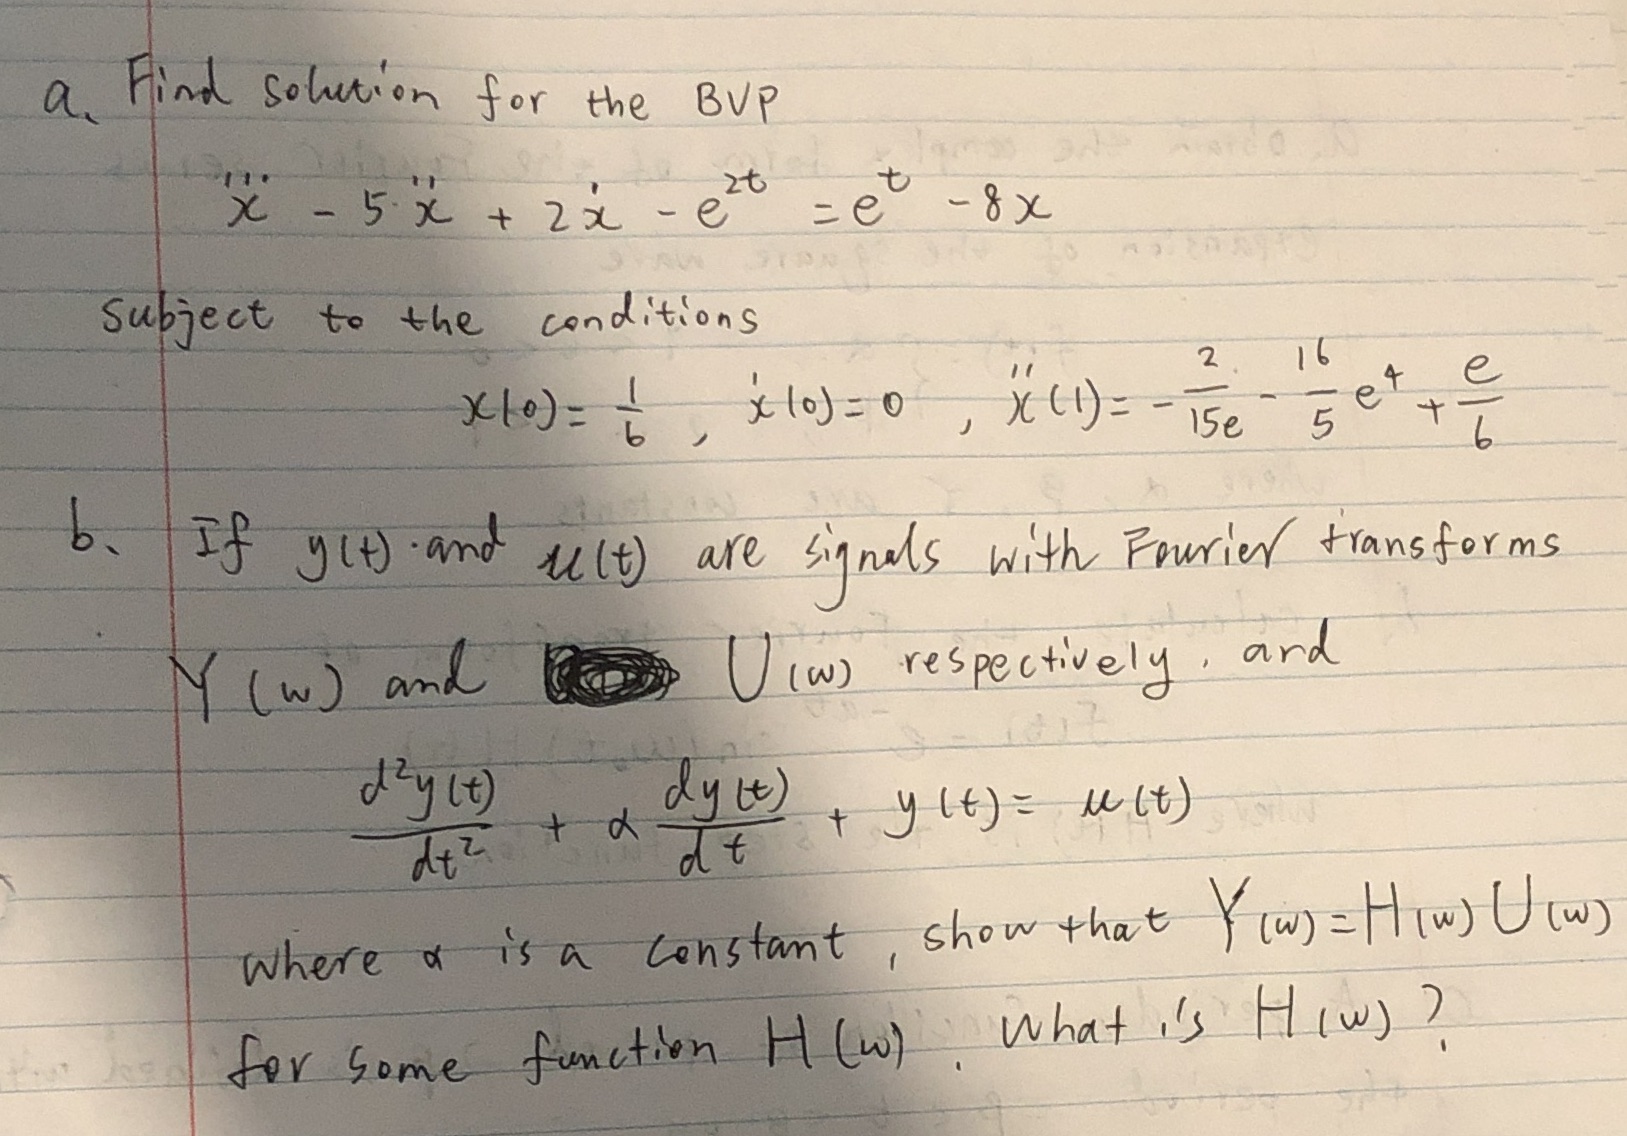 a. Find solution for the BVP
x⃛ - 5·ẍ + 2ẋ - e^{2t} = e^t - 8x
subject to the conditions
x(0) = 1/6, ẋ(0) = 0, ẍ(1) = -2/15e - 16/5 e^4 + e/6
b. If y(t) and u(t) are signals with Fourier transforms
Y(w) and U(w) respectively, and
d²y(t)/dt² + α dy(t)/dt + y(t) = u(t)
where α is a constant, show that Y(w) = H(w) U(w)
for some function H(w). What is H(w)?